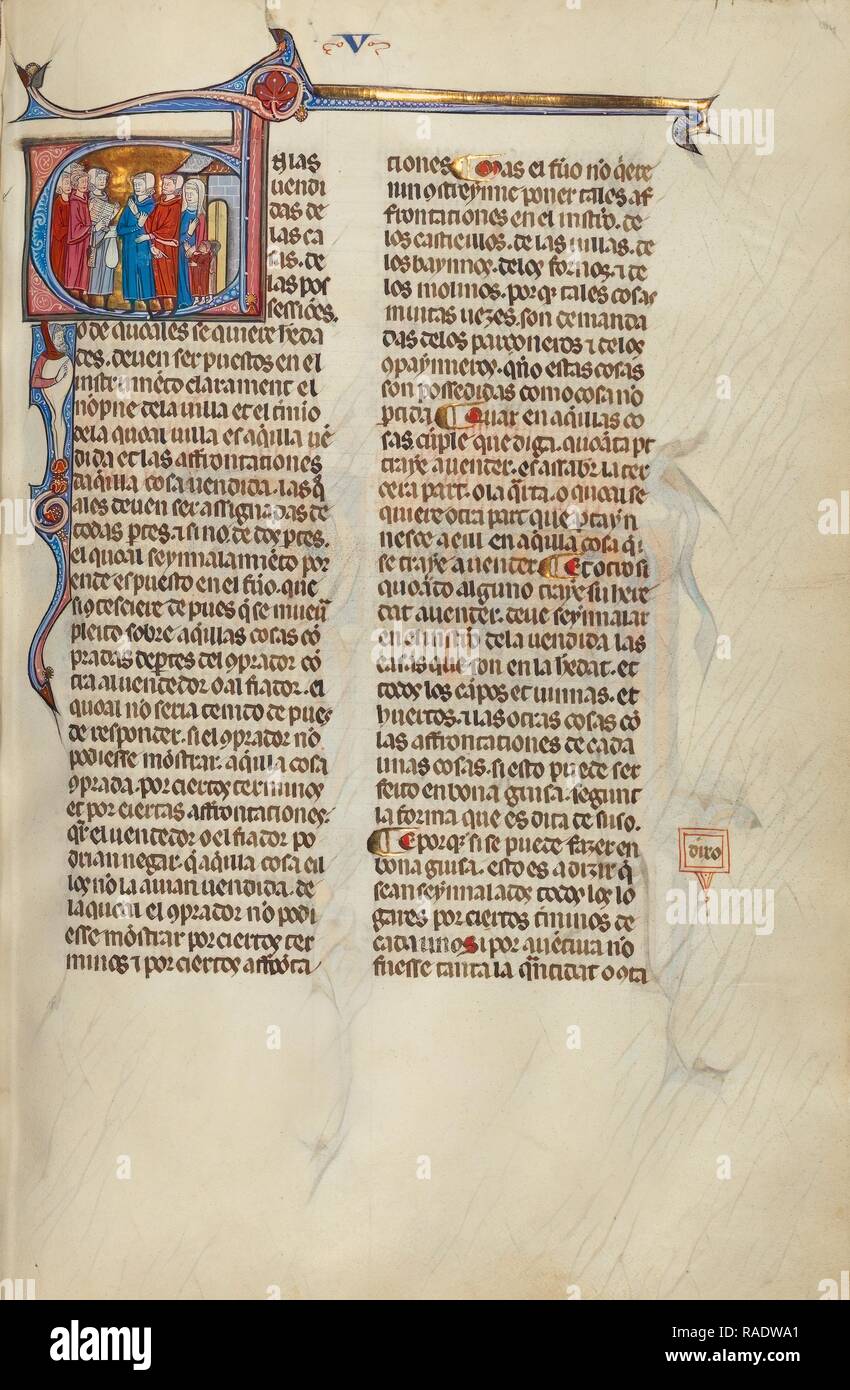 V
n las
uendi
das de
las ca
sas. de
las pos
sessiões.
o de quoales se quiere heda
des. deuen ser puestos en el
instrumēto clarament el
nōpne dela uilla et el t̃mio
dela quoal uilla es aq̃lla uē
dida et las affrontationes
daq̃lla cosa uendida. las q̃
ales deuen ser assignadas de
todas ptes. ⁊ si no. de dos ptes.
el quoal seynnalamiēto por
ende es puesto en el fuo. que
si 9tesciere de pues q̃ se mueua
pleito sobre aq̃llas cosas cō
pradas de ptes del 9prador cō
tra al uendedor o al fiador. el
quoal no seria temido de pues
de responder. si el 9prador nō
podiesse mōstrar aq̃lla cosa
9prada. por ciertos terminos
et por ciertas affrontationes.
q̃r el uendedor o el fiador po
drian negar. q̃ aq̃lla cosa eil
los nō la auian uendida. de
la queal el 9prador nō podi
esse mōstrar por ciertos ter
minos ⁊ por ciertas affrōta
tiones Mas el fuo nō q̃ere
nin 9streynne poner tales af
frontationes en el instr̃o. de
los castieillos. de las uillas. de
los baynnos. de los fornos. ⁊ de
los molinos. por q̃ tales cosas
muitas uezes. son demanda
das de los parçoneros ⁊ de los
9paynneros. q̃no estas cosas
son possedidas como cosa nō
ptida Quar en aq̃llas co
sas cūple que diga. quoāta pt
traye a uender. es assabr la ter
cera part. o la q̃rta. o quoal se
quiere otra part que ptayn
nesce a eill en aq̃lla cosa q̃
se traye a uender Et otro si
quoādo alguno traye su here
dat a uender. deue seynnalar
en el instr̃o dela uendida las
casas que son en la hedat. et
todos los cāpos et uinnas. et
huertos. ⁊ las otras cosas cō
las affrontationes de cada
unas cosas. si esto puede ser
feito en bona guisa. segunt
la forma que es dita de suso.
E por q̃ si se puede fazer en
bona guisa. esto es a dizir q̃
sean seynnalados todos los lo
gares por ciertos t̃minos de
cada unos Si por auētura nō
fuesse tanta la q̃ntidat o 9ta
diro
alamy
Image ID: RADWA1
www.alamy.com